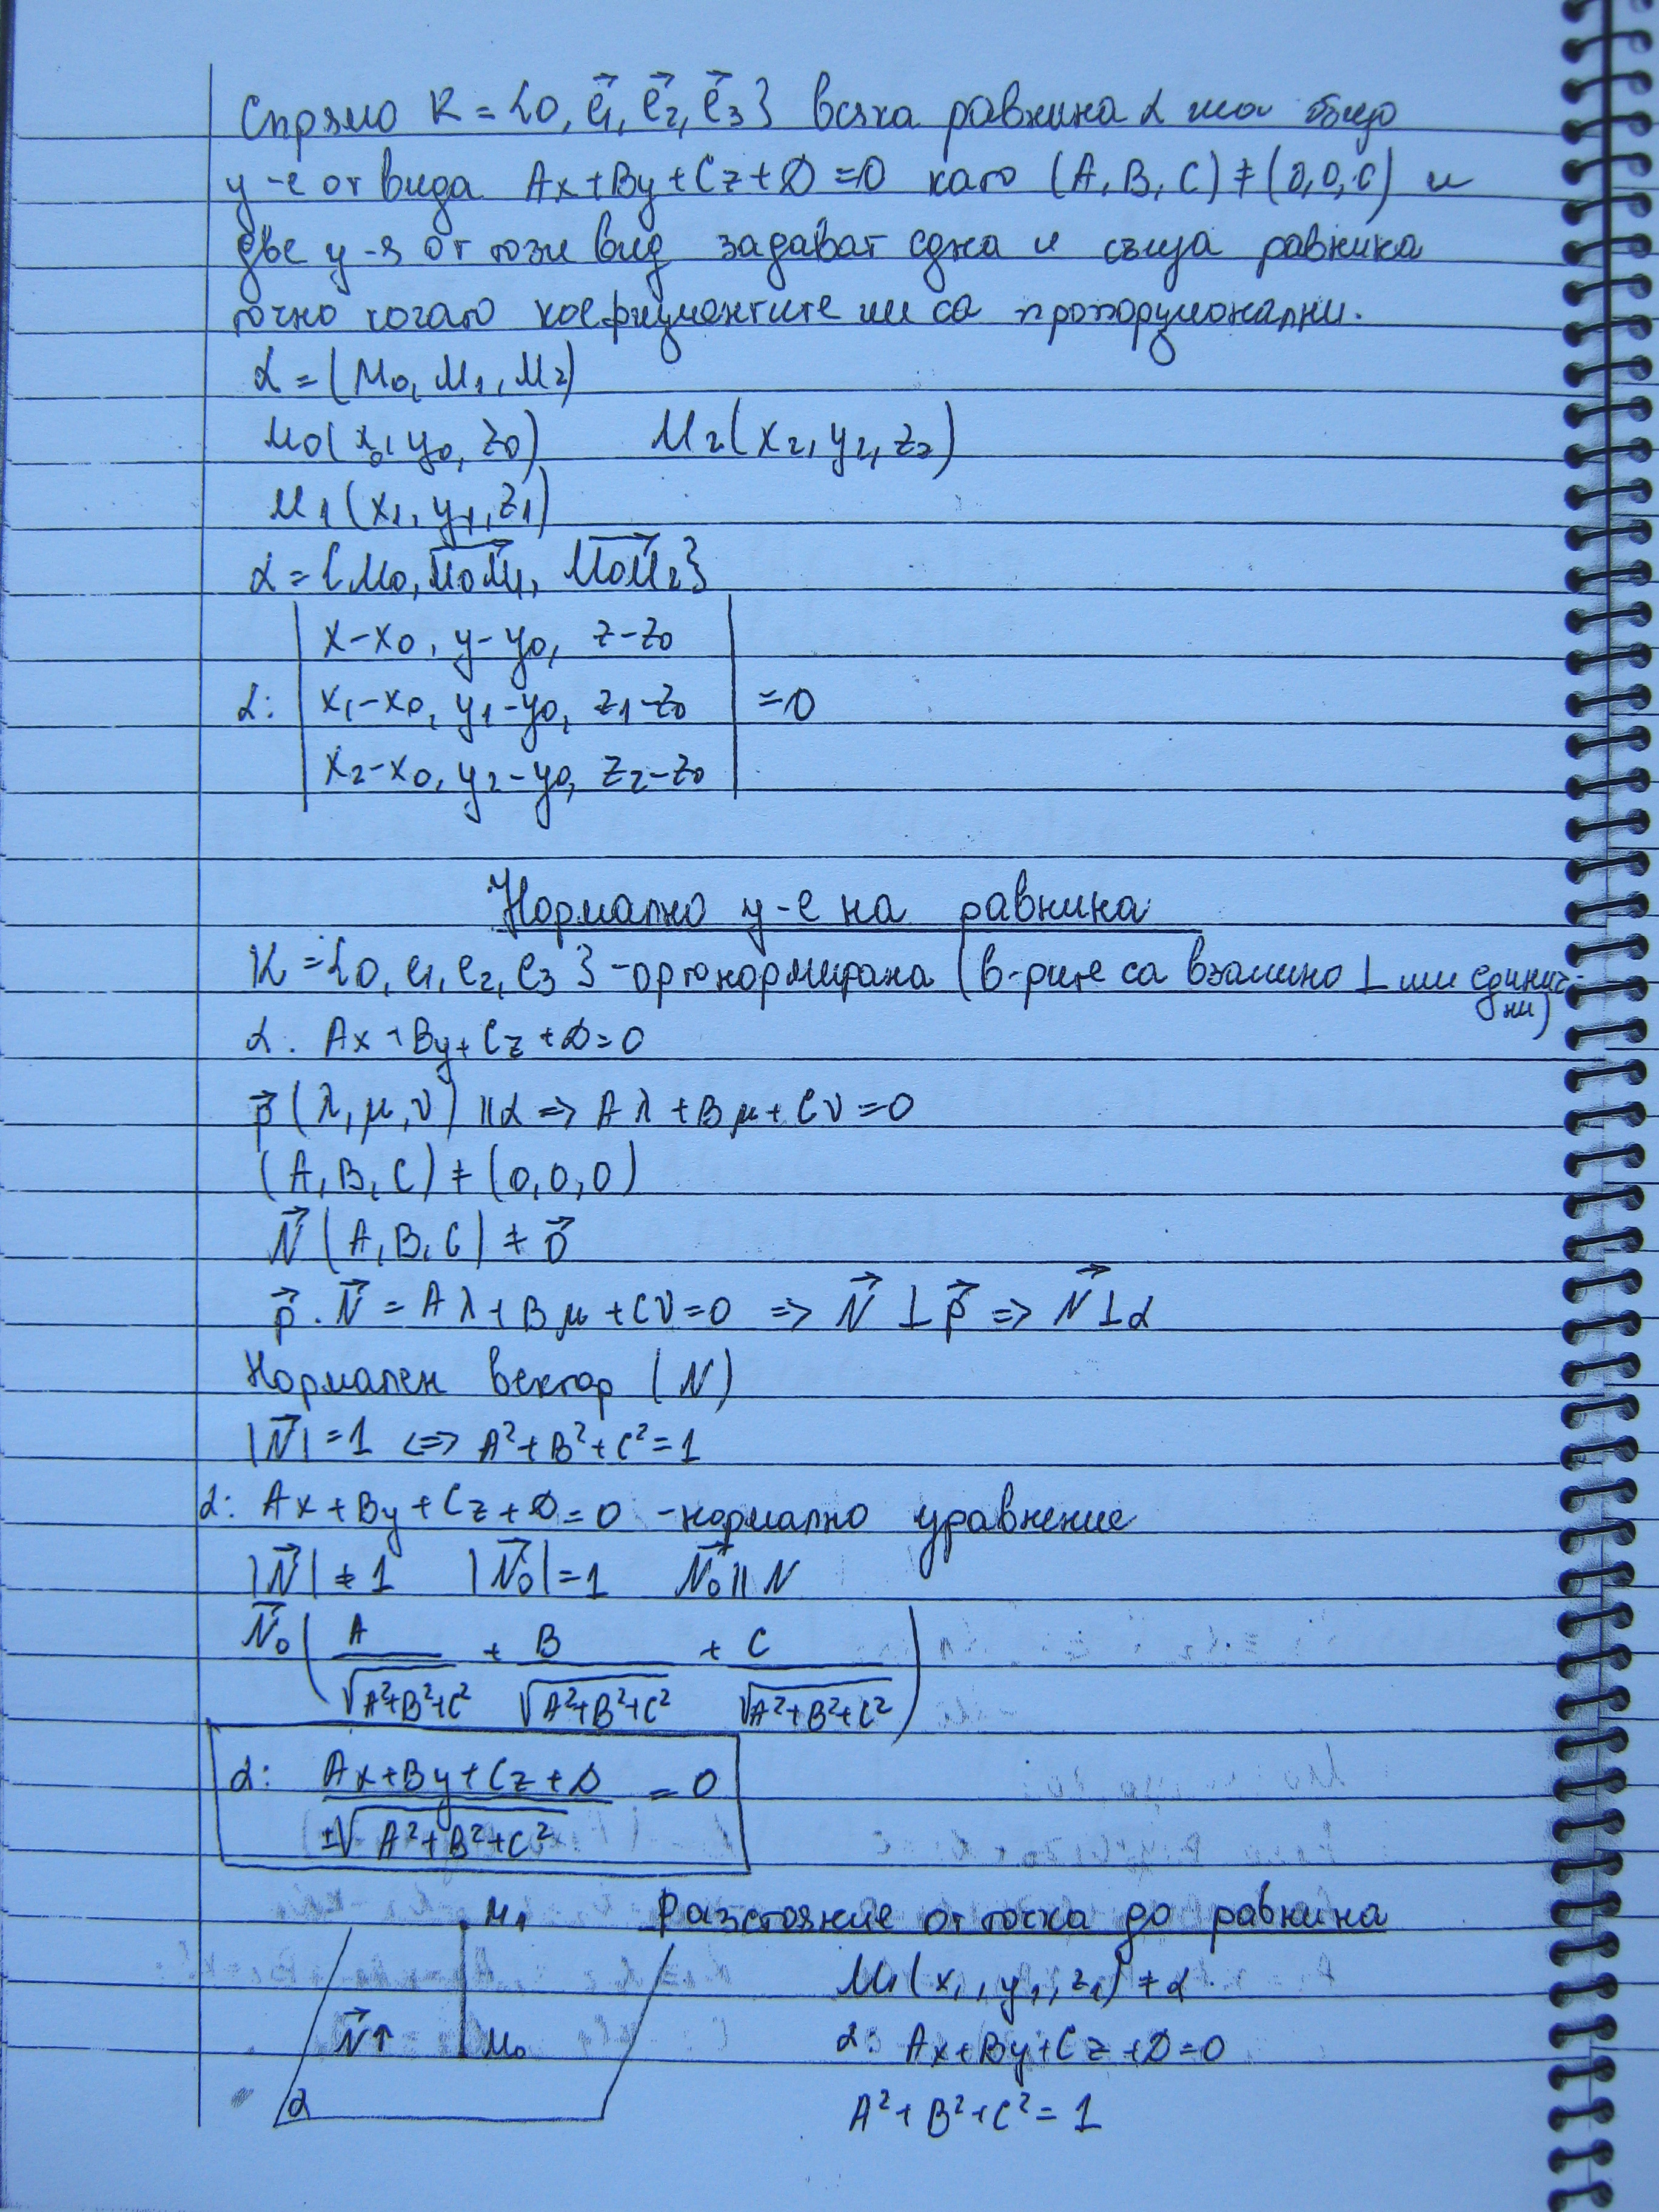 Спрямо K = {O, e⃗1, e⃗2, e⃗3} всяка равнина α има общо
у-е от вида Ax+By+Cz+D=0 като (A, B, C) ≠ (0,0,0) и
две у-я от този вид задават една и съща равнина
точно когато коефициентите им са пропорционални.
α = (M0, M1, M2)
M0(x0, y0, z0) M2(x2, y2, z2)
M1(x1, y1, z1)
α = {M0, M0M1, M0M2}
x-x0, y-y0, z-z0
α: x1-x0, y1-y0, z1-z0 =0
x2-x0, y2-y0, z2-z0
Нормално у-е на равнина
K = {O, e1, e2, e3} - ортонормирана (в-рите са взаимно ⊥ или единич-
ни)
α: Ax+By+Cz+D=0
p⃗ (λ, μ, ν) || α => Aλ+Bμ+Cν=0
(A, B, C) ≠ (0,0,0)
N⃗ (A, B, C) ≠ 0⃗
p⃗ . N⃗ = Aλ+Bμ+Cν=0 => N⃗ ⊥ p⃗ => N⃗ ⊥ α
Нормален вектор (N)
|N⃗| = 1 <=> A²+B²+C²=1
α: Ax+By+Cz+D=0 - нормално уравнение
|N⃗| ≠ 1 |N⃗0| = 1 N⃗0 || N
N⃗0 ( A/√(A²+B²+C²) + B/√(A²+B²+C²) + C/√(A²+B²+C²) )
α: (Ax+By+Cz+D)/(±√(A²+B²+C²)) = 0
M1 Разстояние от точка до равнина
M1(x1, y1, z1) ≠ α
N⃗↑ M0 α: Ax+By+Cz+D=0
α A²+B²+C²=1